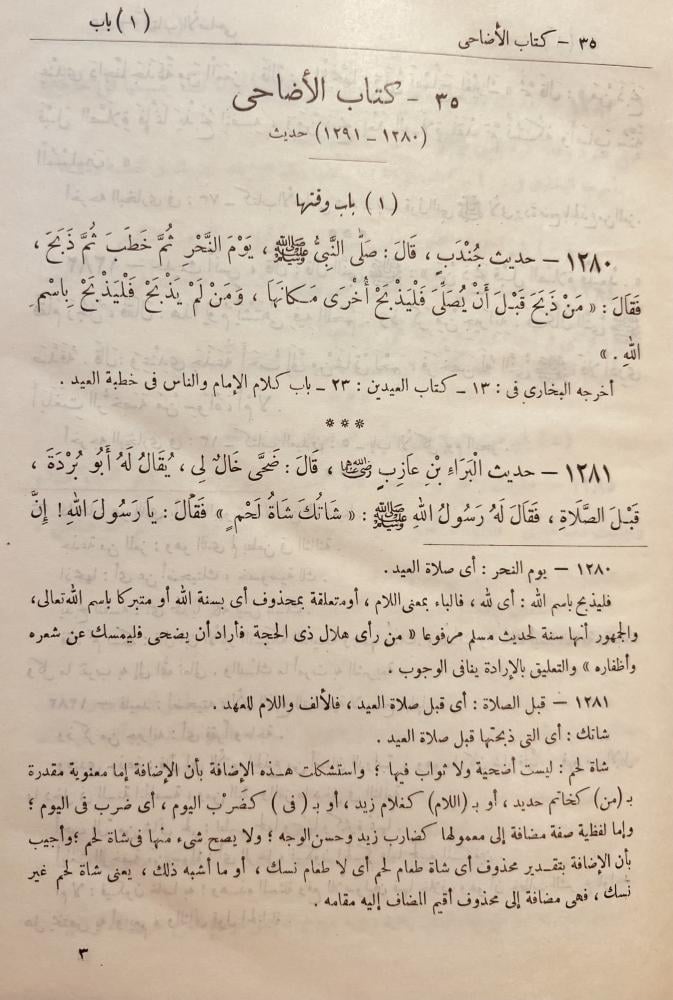 ٣٥ - كتاب الأضاحى
(١) باب
٣٥ - كتاب الأضاحى
(١٢٨٠ - ١٢٩١) حديث
(١) باب وقتها
١٢٨٠ - حديث جُنْدَبٍ، قَالَ: صَلَّى النَّبِيُّ ﷺ، يَوْمَ النَّحْرِ ثُمَّ خَطَبَ ثُمَّ ذَبَحَ،
فَقَالَ: «مَنْ ذَبَحَ قَبْلَ أَنْ يُصَلِّيَ فَلْيَذْبَحْ أُخْرَى مَكَانَهَا، وَمَنْ لَمْ يَذْبَحْ فَلْيَذْبَحْ بِاسْمِ
اللهِ.»
أخرجه البخارى فى: ١٣ - كتاب العيدين: ٢٣ - باب كلام الإمام والناس فى خطبة العيد.
***
١٢٨١ - حديث الْبَرَاءِ بْنِ عَازِبٍ رضي الله عنهما، قَالَ: ضَحَّى خَالٌ لِى، يُقَالُ لَهُ أَبُو بُرْدَةَ،
قَبْلَ الصَّلَاةِ، فَقَالَ لَهُ رَسُولُ اللهِ ﷺ: «شَاتُكَ شَاةُ لَحْمٍ» فَقَالَ: يَا رَسُولَ اللهِ! إِنَّ
١٢٨٠ - يوم النحر: أى صلاة العيد.
فليذبح باسم الله: أى لله، فالباء بمعنى اللام، أو متعلقة بمحذوف أى بسنة الله أو متبركا باسم الله تعالى،
والجمهور أنها سنة لحديث مسلم مرفوعا «من رأى هلال ذى الحجة فأراد أن يضحى فليمسك عن شعره
وأظفاره» والتعليق بالإرادة ينافى الوجوب.
١٢٨١ - قبل الصلاة: أى قبل صلاة العيد، فالألف واللام للعهد.
شاتك: أى التى ذبحتها قبل صلاة العيد.
شاة لحم: ليست أضحية ولا ثواب فيها؛ واستشكلت هذه الإضافة بأن الإضافة إما معنوية مقدرة
بـ (من) كخاتم حديد، أو بـ (اللام) كغلام زيد، أو بـ (فى) كضَرْب اليوم، أى ضرب فى اليوم؛
وإما لفظية صفة مضافة إلى معمولها كضارب زيد وحسن الوجه؛ ولا يصح شىء منها فى شاة لحم؛ وأجيب
بأن الإضافة بتقدير محذوف أى شاة طعام لحم أى لا طعام نسك، أو ما أشبه ذلك، يعنى شاة لحم غير
نسك، فهى مضافة إلى محذوف أقيم المضاف إليه مقامه.
٣